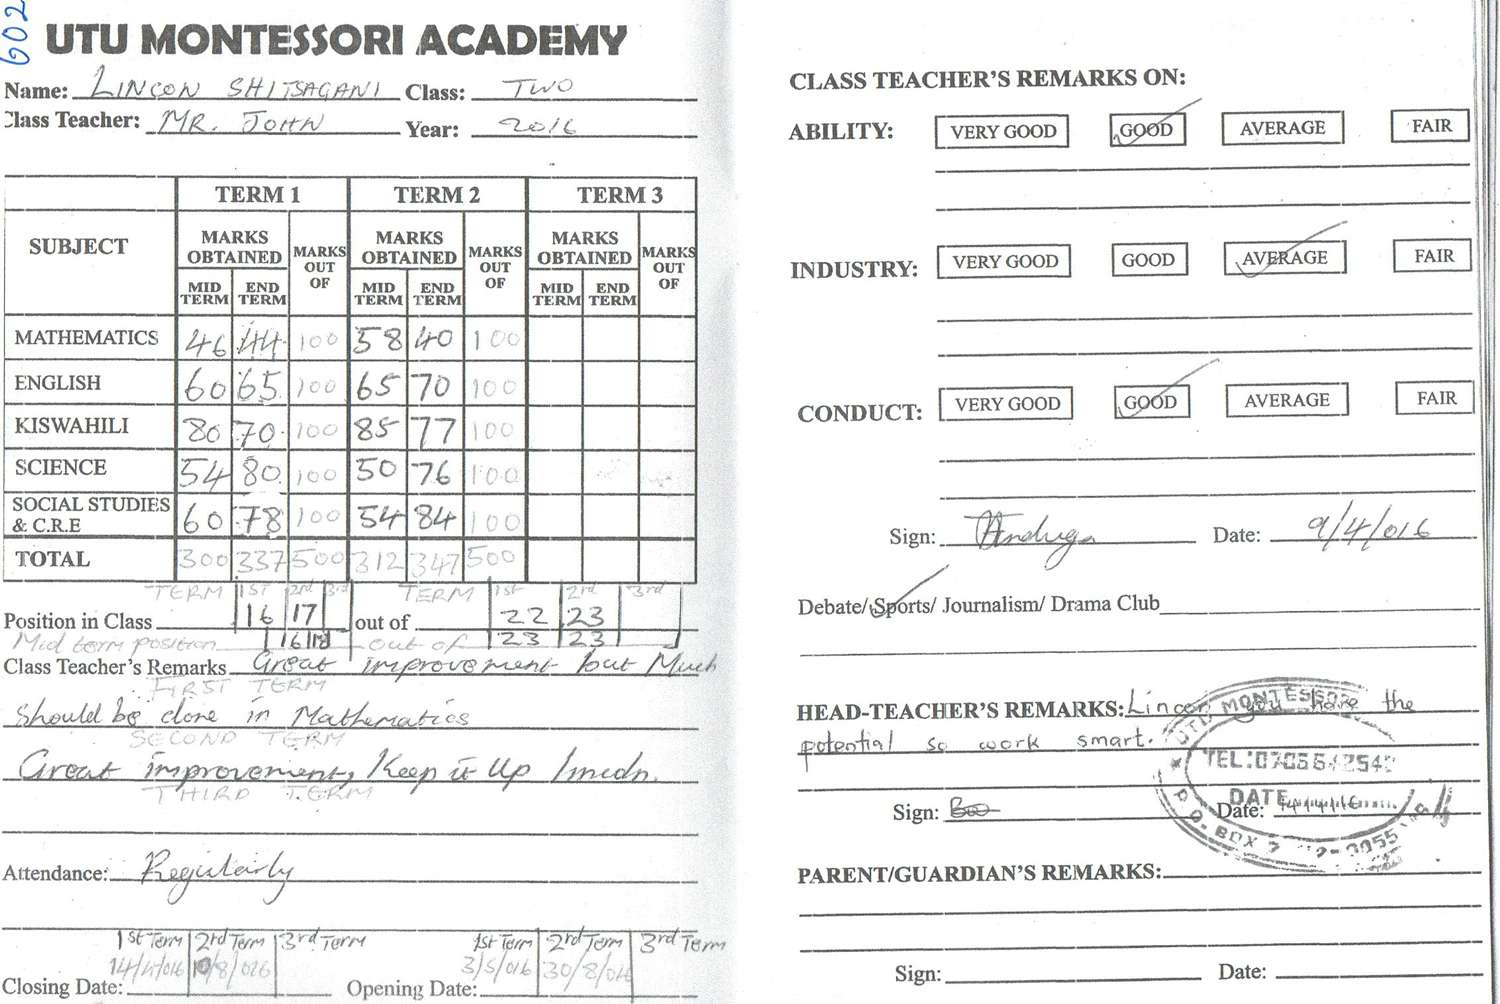 602
UTU MONTESSORI ACADEMY
Name: LINCON SHITSAGANI Class: TWO
Class Teacher: MR. JOHN Year: 2016
TERM 1 TERM 2 TERM 3
SUBJECT MARKS OBTAINED MARKS OUT OF MARKS OBTAINED MARKS OUT OF MARKS OBTAINED MARKS OUT OF
MID TERM END TERM MID TERM END TERM MID TERM END TERM
MATHEMATICS 46 44 100 58 40 100
ENGLISH 60 65 100 65 70 100
KISWAHILI 80 70 100 85 77 100
SCIENCE 54 80 100 50 76 100
SOCIAL STUDIES & C.R.E 60 78 100 54 84 100
TOTAL 300 337 500 312 347 500
TERM 1ST 2nd 3rd TERM 1st 2nd 3rd
Position in Class 16 17 out of 22 23
Mid term position 16 18 out of 23 23
Class Teacher's Remarks Great improvement but Much
FIRST TERM
Should be done in Mathematics
SECOND TERM
Great improvement, Keep it Up
THIRD TERM
Attendance: Regularly
1st Term 2nd Term 3rd Term 1st Term 2nd Term 3rd Term
14/4/016 10/8/016 3/5/016 30/8/016
Closing Date: Opening Date:
CLASS TEACHER'S REMARKS ON:
ABILITY: VERY GOOD GOOD AVERAGE FAIR
INDUSTRY: VERY GOOD GOOD AVERAGE FAIR
CONDUCT: VERY GOOD GOOD AVERAGE FAIR
Sign: Date: 9/4/016
Debate/ Sports/ Journalism/ Drama Club
HEAD-TEACHER'S REMARKS: Lincon you have the
potential so work smart.
UTU MONTESSORI
TEL:
DATE
P.O. BOX
Sign: Date:
PARENT/GUARDIAN'S REMARKS:
Sign: Date: